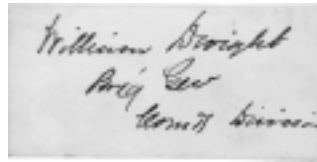 William Dwight
Brig Gen
Comd'g Division